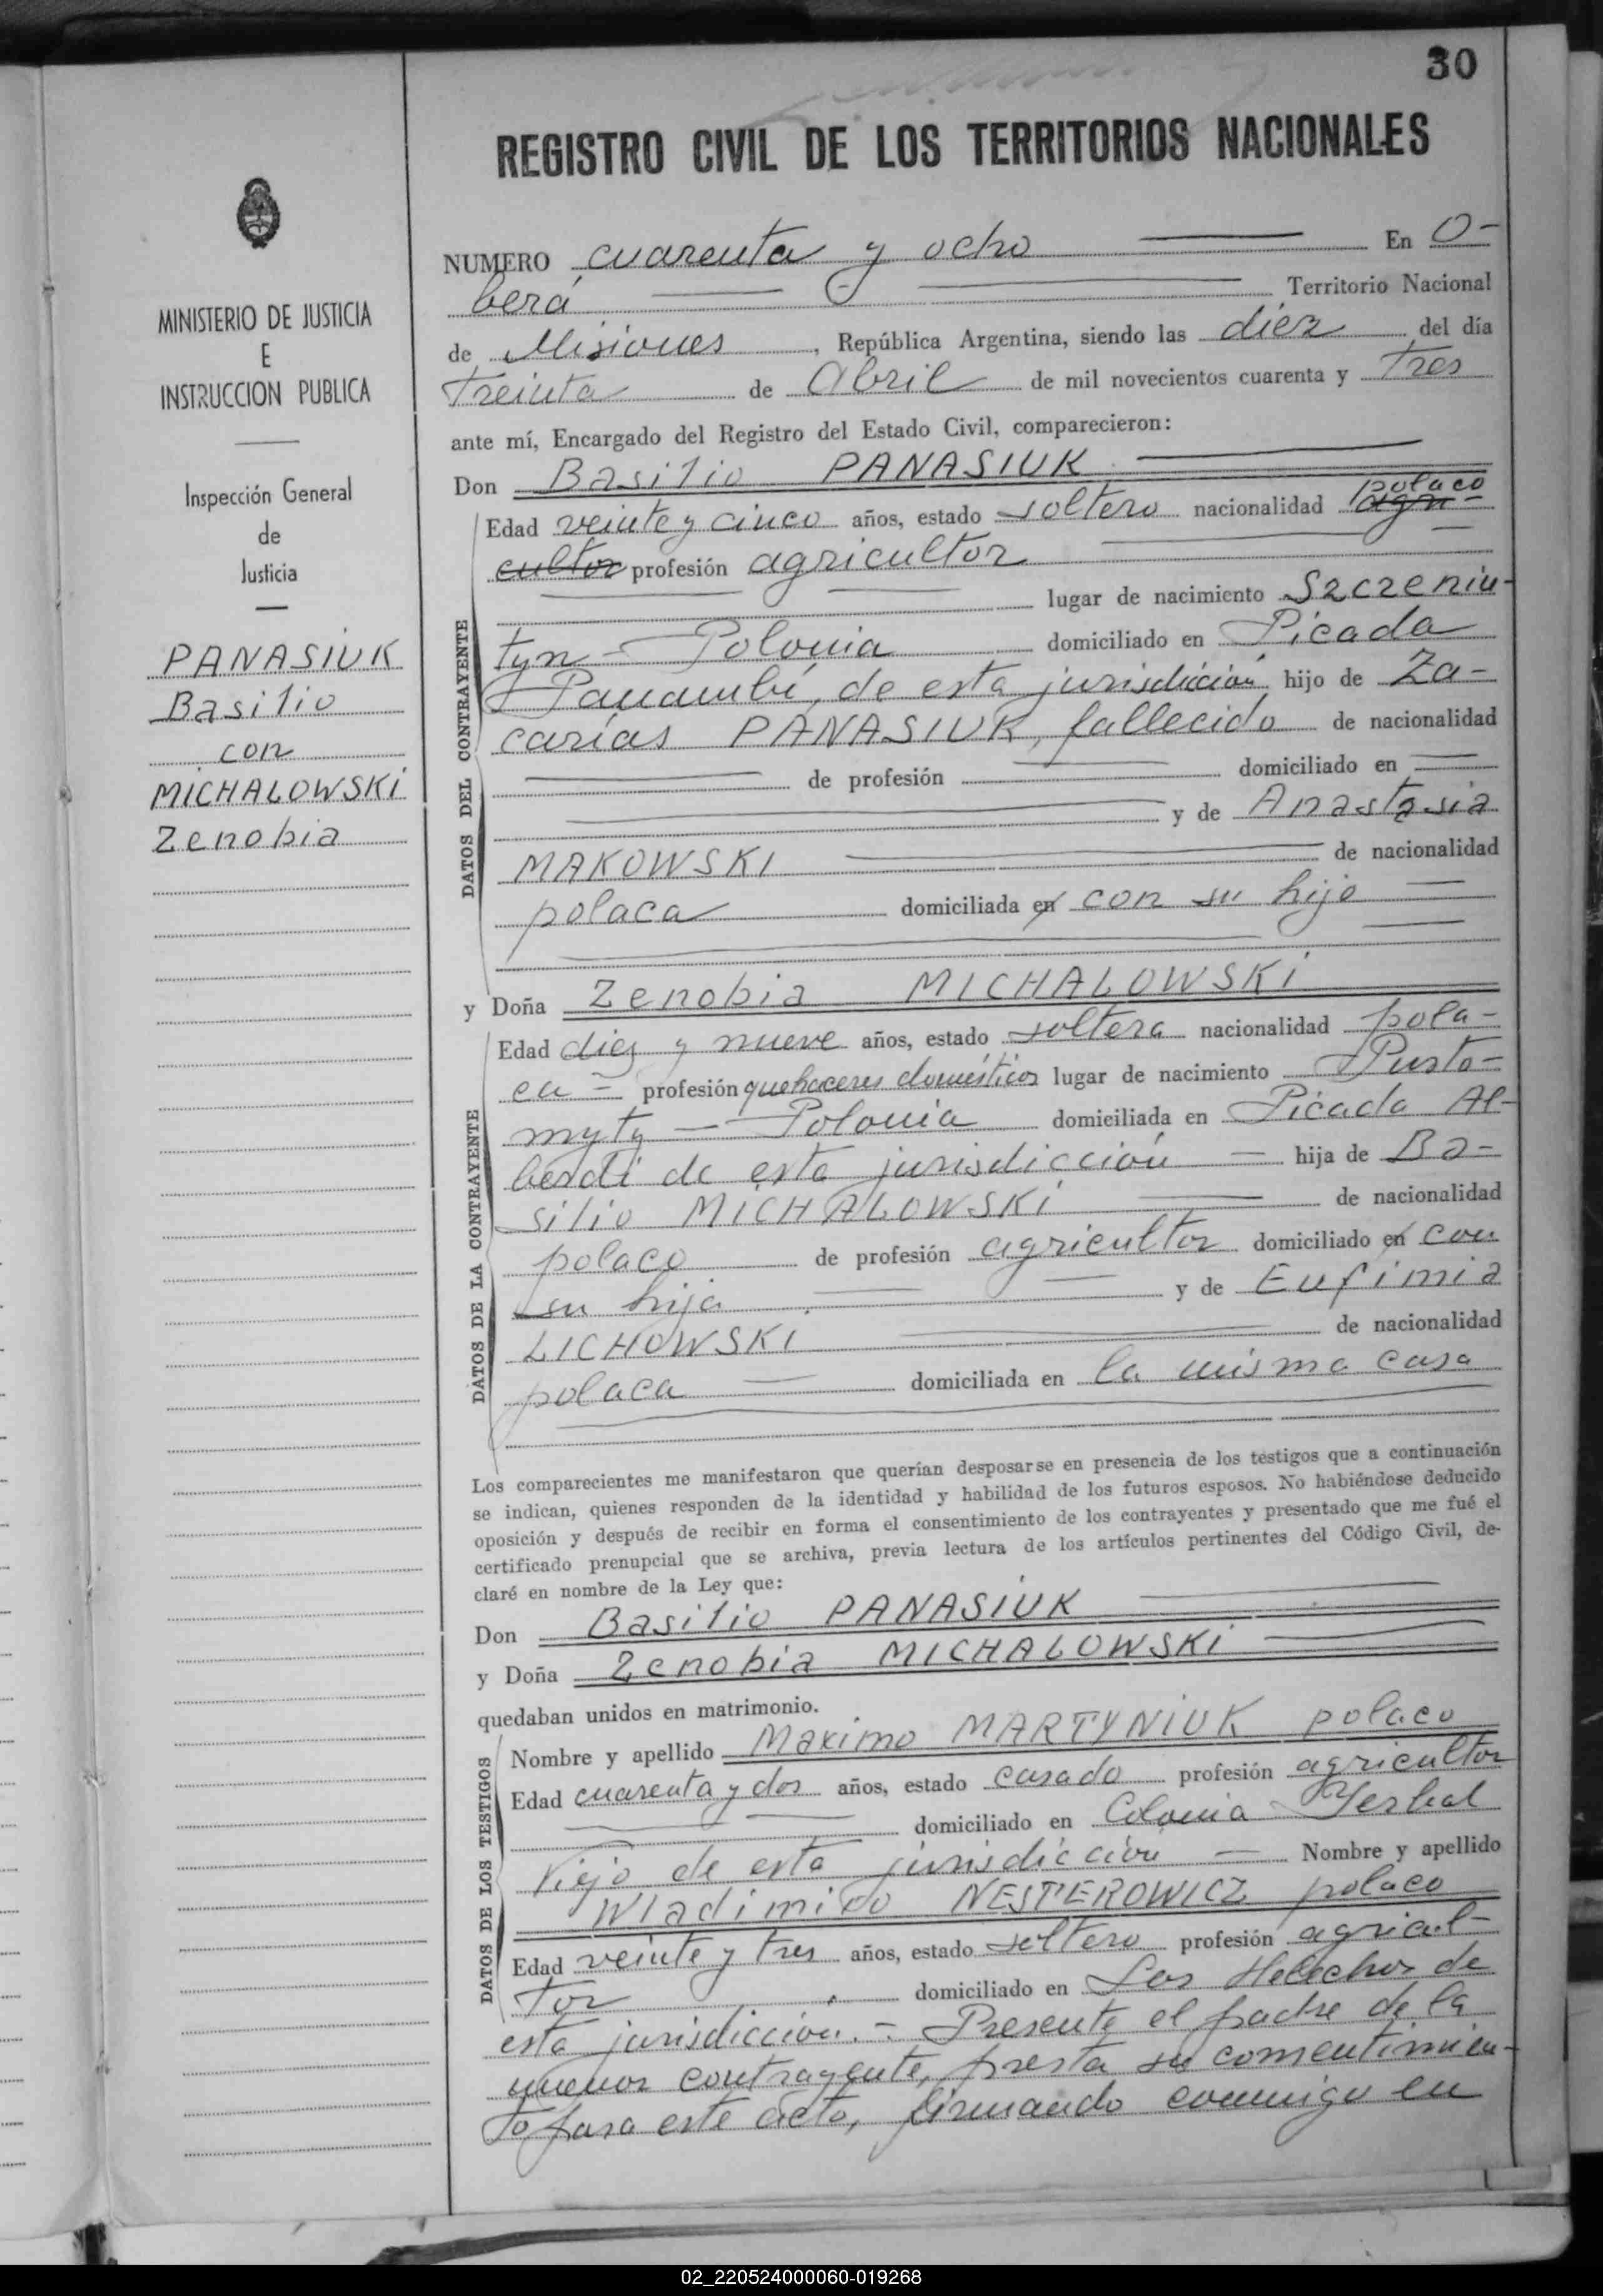 30
REGISTRO CIVIL DE LOS TERRITORIOS NACIONALES
MINISTERIO DE JUSTICIA
E
INSTRUCCION PUBLICA
Inspección General
de
Justicia
PANASIUK
Basilio
con
MICHALOWSKI
Zenobia
NUMERO cuarenta y ocho En O-
berá Territorio Nacional
de Misiones, República Argentina, siendo las diez del día
treinta de Abril de mil novecientos cuarenta y tres
ante mí, Encargado del Registro del Estado Civil, comparecieron:
Don Basilio PANASIUK
DATOS DEL CONTRAYENTE
Edad veinte y cinco años, estado soltero nacionalidad polaco agri-
cultor profesión agricultor
lugar de nacimiento Szczeniu-
tyn - Polonia domiciliado en Picada
Panambí, de esta jurisdicción hijo de Za-
carías PANASIUK, fallecido de nacionalidad
de profesión domiciliado en
y de Anastasia
MAKOWSKI de nacionalidad
polaca domiciliada en con su hijo
y Doña Zenobia MICHALOWSKI
DATOS DE LA CONTRAYENTE
Edad diez y nueve años, estado soltera nacionalidad pola-
ca = profesión quehaceres domésticos lugar de nacimiento Pusto-
myty - Polonia domiciliada en Picada Al-
berdi de esta jurisdicción - hija de Ba-
silio MICHALOWSKI de nacionalidad
polaco de profesión agricultor domiciliado en con
su hija y de Eufimia
LICHOWSKI de nacionalidad
polaca domiciliada en la misma casa
Los comparecientes me manifestaron que querían desposarse en presencia de los testigos que a continuación
se indican, quienes responden de la identidad y habilidad de los futuros esposos. No habiéndose deducido
oposición y después de recibir en forma el consentimiento de los contrayentes y presentado que me fué el
certificado prenupcial que se archiva, previa lectura de los artículos pertinentes del Código Civil, de-
claré en nombre de la Ley que:
Don Basilio PANASIUK
y Doña Zenobia MICHALOWSKI
quedaban unidos en matrimonio.
DATOS DE LOS TESTIGOS
Nombre y apellido Maximo MARTYNIUK polaco
Edad cuarenta y dos años, estado casado profesión agricultor
domiciliado en Colonia Yerbal
Viejo de esta jurisdicción - Nombre y apellido
Wladimiro NESTEROWICZ polaco
Edad veinte y tres años, estado soltero profesión agricul-
tor domiciliado en Los Helechos de
esta jurisdicción. - Presente el padre de la
menor contrayente, presta su consentimien-
to para este acto, firmando conmigo en
02_220524000060-019268